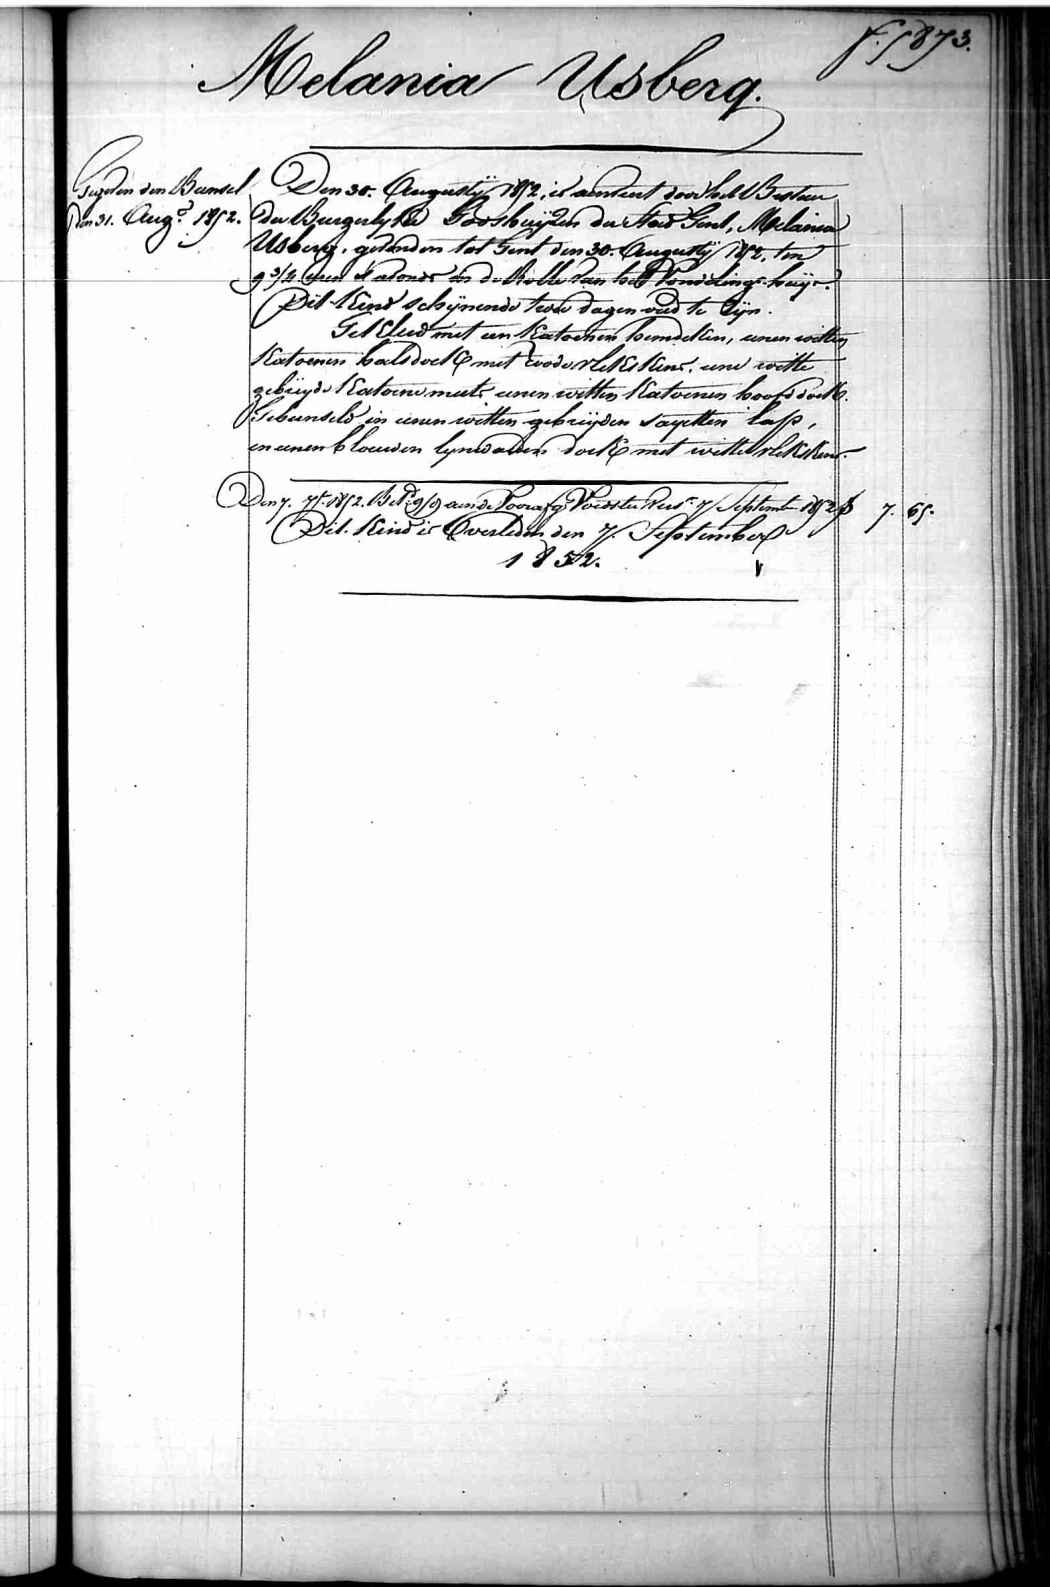 f. 5873.
Melania Usberg.
Gegeven den Bunsel
den 31. Aug.t 1852.
Den 30. Augustÿ 1852, is aenveert door het Bestuer
der Burgerlyke Godshuyzen der Stad Gent, Melania
Usberg, gevonden tot Gent den 30. Augustÿ 1852, ten
9 3/2 uren 's avonds in de Rolle van het Vondelings-huys.
Dit Kind schÿnende twee dagen oud te zÿn.
Gekleed met een Katoenen hemdeken, eenen witten
Katoenen halsdoek met roode vlekskens, eene witte
gebreyde Katoene muts eenen witten Katoenen hoofddoek.
Gebunseld in eenen witten gebreyden sayetten lap,
en eenen blauwen lynwaden doek met witte vlekskens.
Den 7. 7.r 1852. Bet.d 9/9 aen de Voorz. 7 September 1852 f 7. 65.
Dit Kind is Overleden den 7. September
1852.